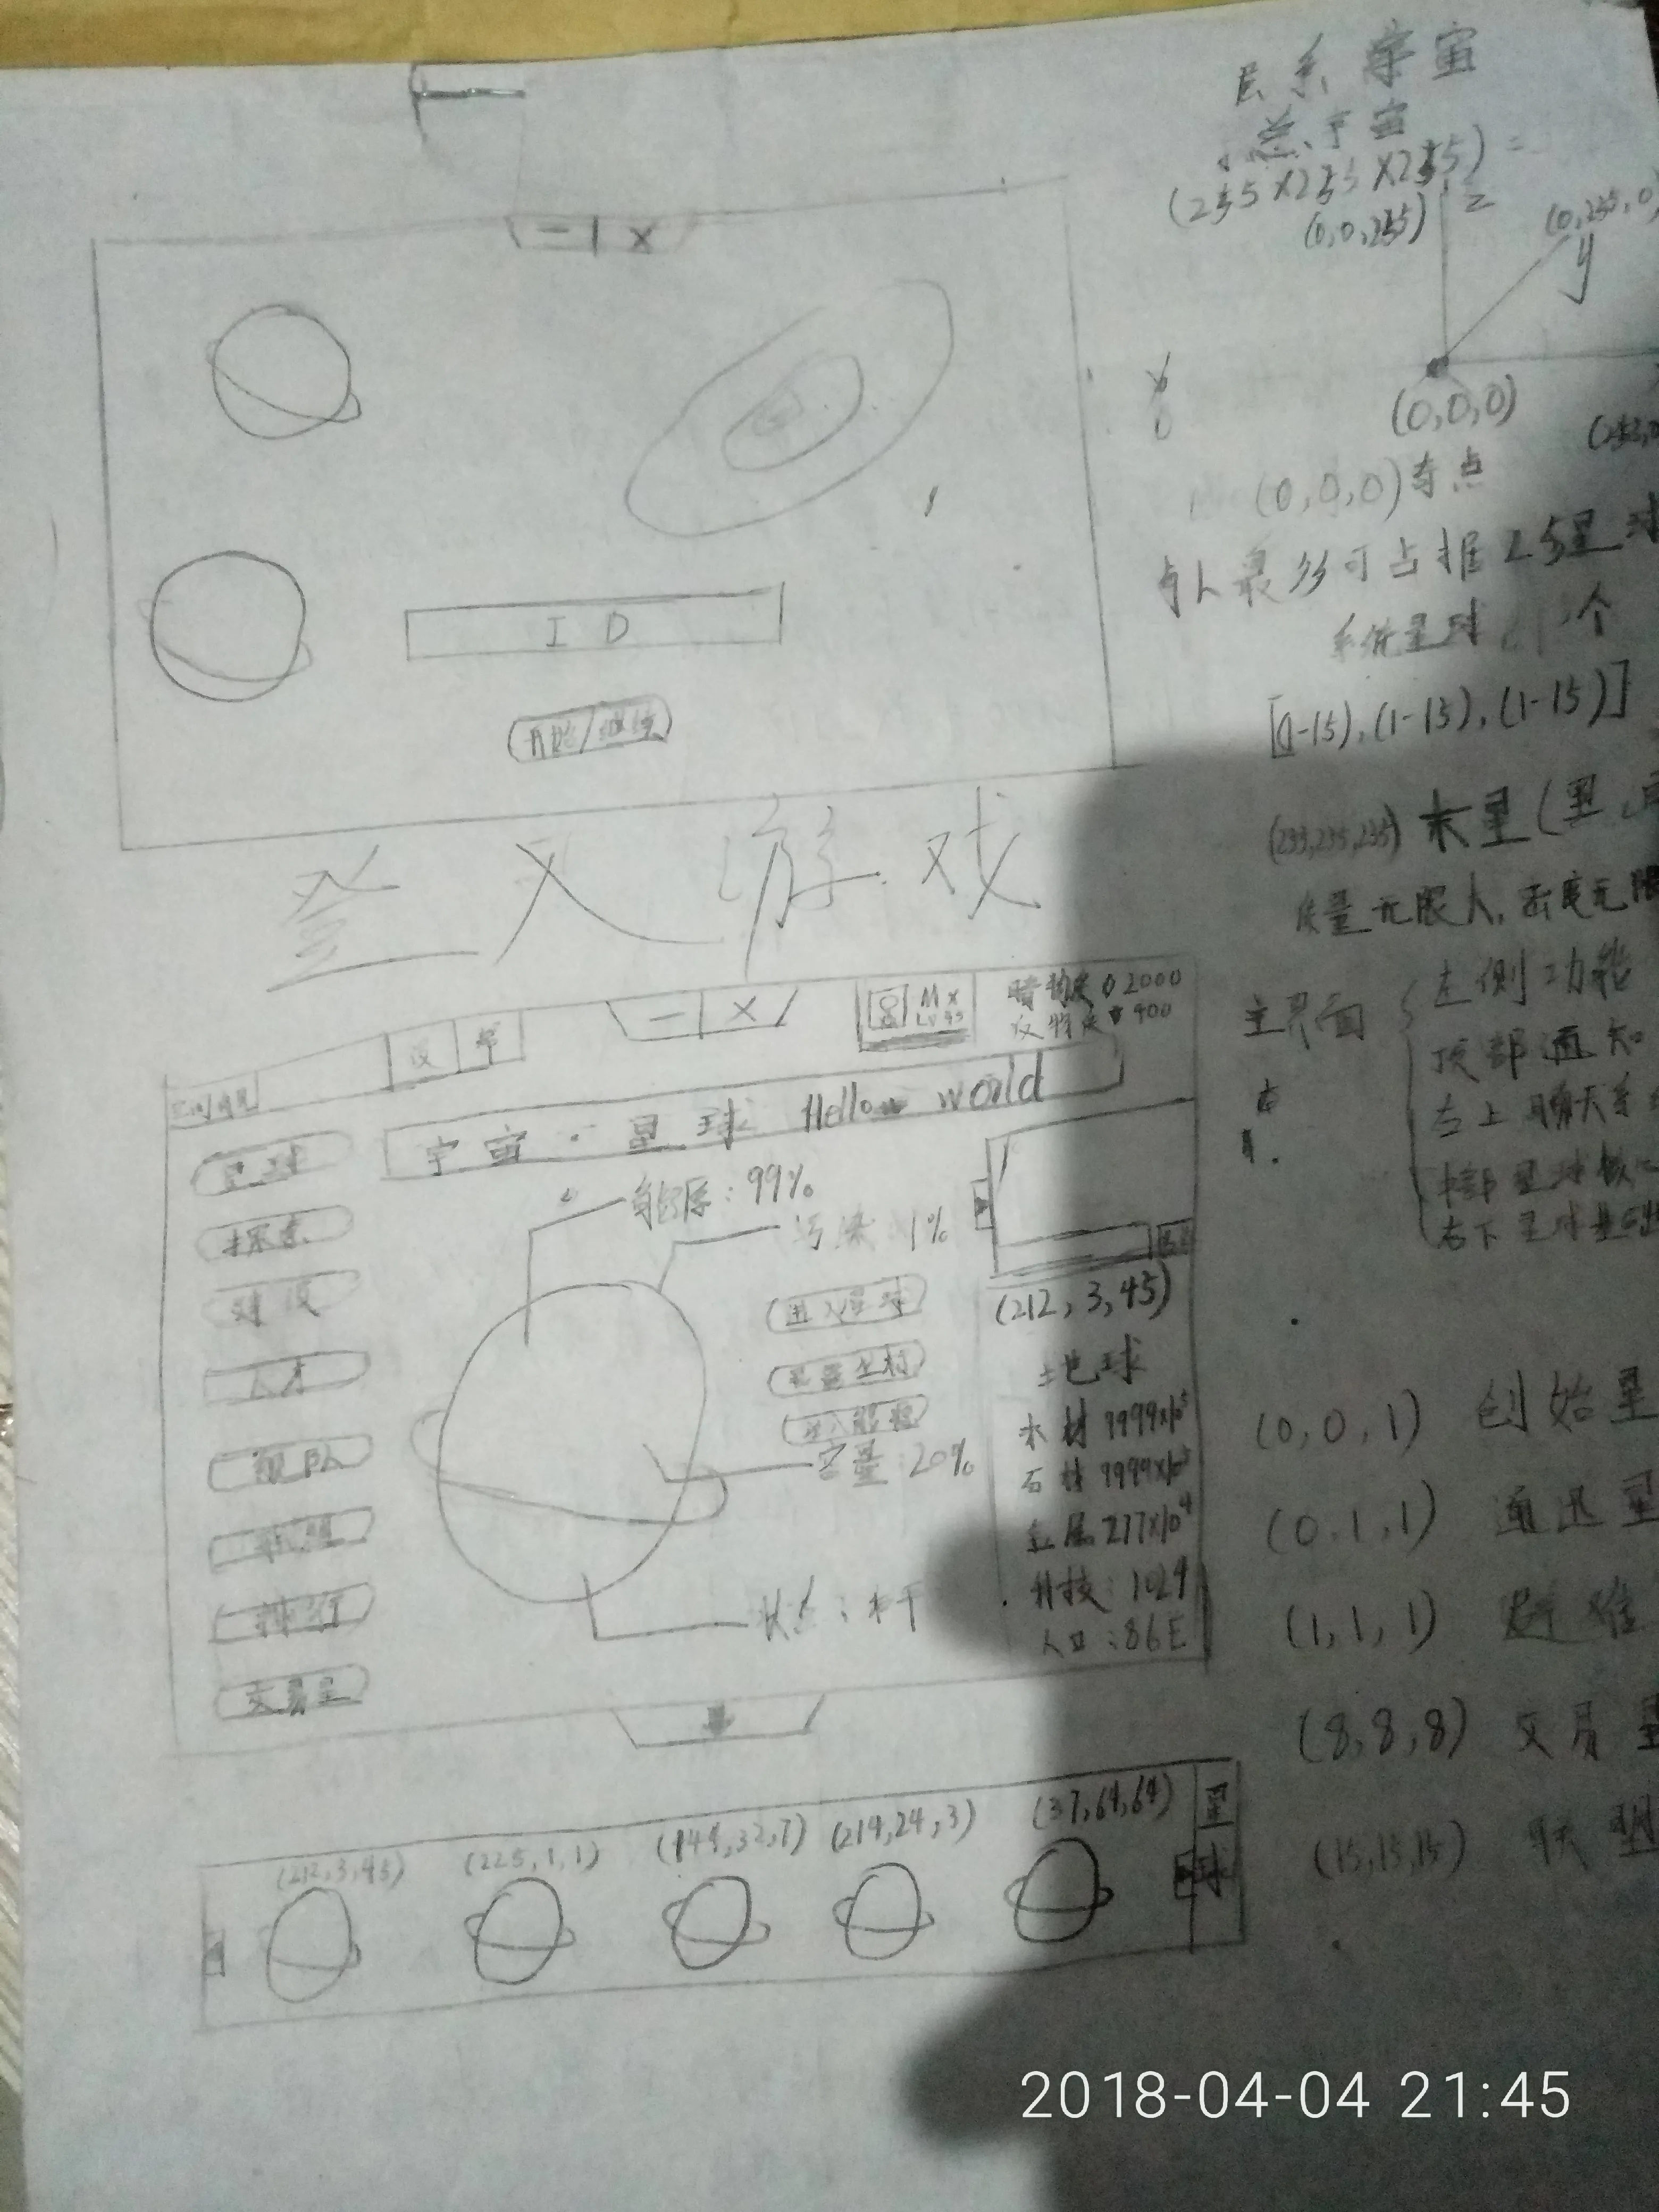 宇宙
总宇宙
(255×255×255)=
(0,0,255)
z
(0,255,0)
y
(0,0,0)
(0,0,0)奇点
最多可占据25星球
系统星球 个
[(1-15),(1-15),(1-15)]
(255,255,255) 末星(
质量无限大,密度无限
ID
开始/继续
登入游戏
主界面
左侧功能
顶部通知
右上聊天系
右下星球基
— ×
设
Lv 45
暗物质 2000
反物质 900
宇宙·星球 Hello world
星球
探索
建设
人才
舰队
联盟
排行
交易星
能源:99%
污染 1%
进入星球
容量:20%
状态:
(212,3,45)
地球
木材 9999×10⁵
石材 9999×10⁵
金属 277×10⁴
科技:1024
人口:86E
(0,0,1) 创始星
(0,1,1) 通迅星
(1,1,1) 避难
(8,8,8) 交易星
(15,15,15) 联盟
(212,3,45)
(225,1,1)
(144,32,7)
(214,24,3)
(37,64,64)
星球
2018-04-04 21:45